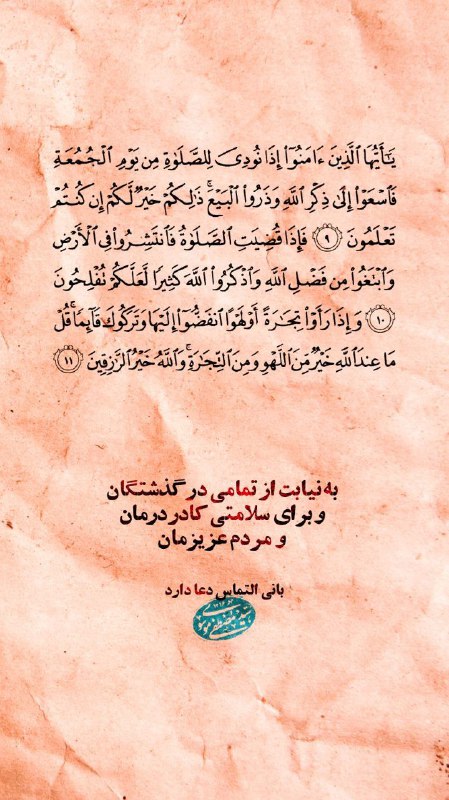 يَٰٓأَيُّهَا ٱلَّذِينَ ءَامَنُوٓا۟ إِذَا نُودِىَ لِلصَّلَوٰةِ مِن يَوْمِ ٱلْجُمُعَةِ
فَٱسْعَوْا۟ إِلَىٰ ذِكْرِ ٱللَّهِ وَذَرُوا۟ ٱلْبَيْعَ ۚ ذَٰلِكُمْ خَيْرٌ لَّكُمْ إِن كُنتُمْ
تَعْلَمُونَ ٩ فَإِذَا قُضِيَتِ ٱلصَّلَوٰةُ فَٱنتَشِرُوا۟ فِى ٱلْأَرْضِ
وَٱبْتَغُوا۟ مِن فَضْلِ ٱللَّهِ وَٱذْكُرُوا۟ ٱللَّهَ كَثِيرًا لَّعَلَّكُمْ تُفْلِحُونَ
١٠ وَإِذَا رَأَوْا۟ تِجَٰرَةً أَوْ لَهْوًا ٱنفَضُّوٓا۟ إِلَيْهَا وَتَرَكُوكَ قَآئِمًا ۚ قُلْ
مَا عِندَ ٱللَّهِ خَيْرٌ مِّنَ ٱللَّهْوِ وَمِنَ ٱلتِّجَٰرَةِ ۚ وَٱللَّهُ خَيْرُ ٱلرَّٰزِقِينَ ١١
به نیابت از تمامی درگذشتگان
و برای سلامتی کادر درمان
و مردم عزیزمان
بانی التماس دعا دارد